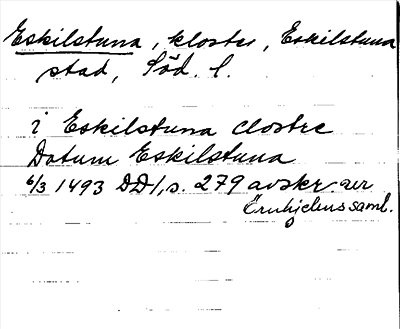 Eskilstuna, kloster, Eskilstuna
stad, Söd. l.
i Eskilstuna Clostre
Datum Eskilstuna
6/3 1493 DD1, s. 279 avskr. ur
Örnhjelms saml.